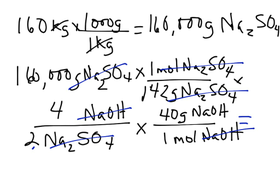 160 kg x 1000g / 1kg = 160,000g Na₂SO₄
160,000g Na₂SO₄ x 1mol Na₂SO₄ / 142g Na₂SO₄ x
4 NaOH / 2 Na₂SO₄ x 40g NaOH / 1mol NaOH =